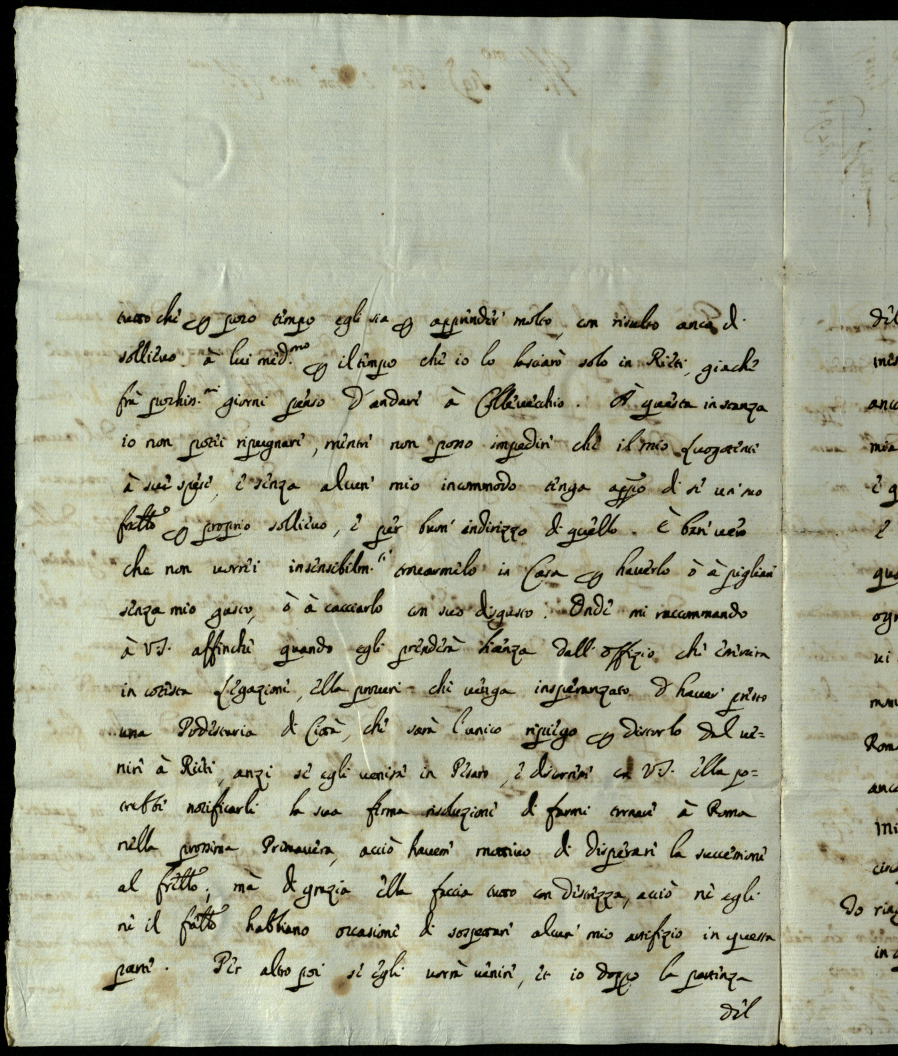 tutto che per poco tempo egli sia per apprender molto, con risulto anco di
sollievo à lui med.mo per il tempo che io lo lasciarò solo in Rieti, giache
frà pochis.mi giorni penso d'andare à Collevecchio. A questa instanza
io non potei repugnare, mentre non posso impedire che il mio Luogotenente
à sue spese, e senza alcun' mio incommodo tenga app.o di se un' suo
fratt.o per proprio sollievo, e per buon' indirizzo di quello. È ben' vero
che non vorrei insensibilm.te trovarmelo in Casa per haverlo ò à pigliare
senza mio gusto, ò à cacciarlo con suo disgusto. Onde mi raccommando
à V.S. affinche quando egli prenderà licenza dall' offizio che esercita
in cotesta Legazione, ella procuri che venga insperanzato d'haver presto
una Podestaria di Città, che sarà l'unico ripiego per distorlo dal ve=
nire à Rieti, anzi se egli venisse in Pesaro, e discorresse con V.S. ella po=
trebbe notificarli la sua ferma risoluzione di farmi tornare à Roma
nella prossima Primavera, acciò havesse motivo di disperare la successione
al fratt.o; mà di grazia ella faccia tutto con destrezza, acciò ne egli
ne il fratt.o habbiano occasione di sospettare alcun' mio artifizio in questa
parte. Per altro poi se egli vorrà venire, et io doppo la partenza
del
del
anco
mia
e
ogn
vi
Roma
anco
do
in